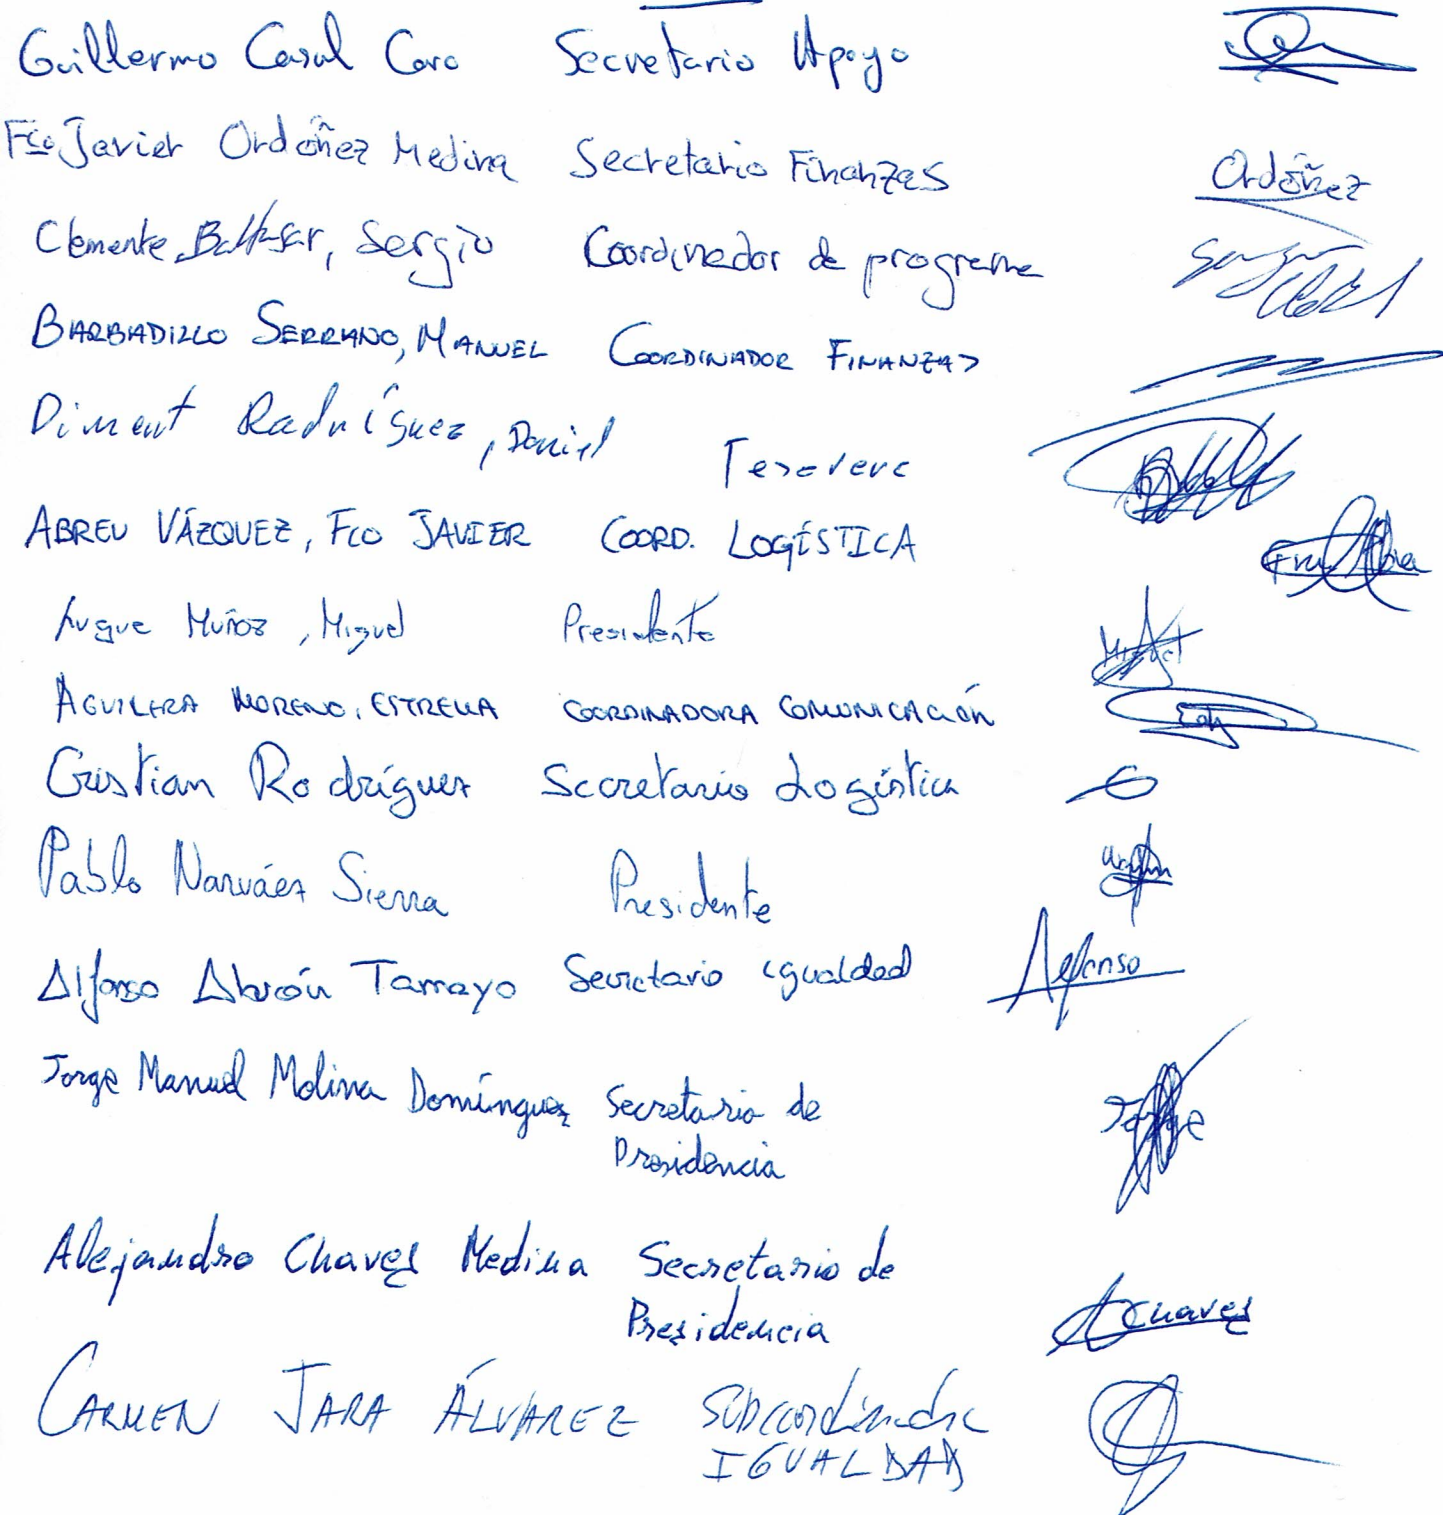 Guillermo Casal Caro Secretario Apoyo
Fco Javier Ordóñez Medina Secretario Finanzas Ordóñez
Clemente Baltasar, Sergio Coordinador de programa
BARBADILLO SERRANO, MANUEL COORDINADOR FINANZAS
Rodríguez, Daniel Tesorero
ABREU VÁZQUEZ, FCO JAVIER COORD. LOGÍSTICA
Luque Muñoz, Miguel Presidente Miguel
AGUILERA MORENO, ESTRELLA COORDINADORA COMUNICACIÓN
Cristian Rodríguez Secretario Logística
Pablo Narváez Sierra Presidente
Alfonso Alarcón Tamayo Secretario igualdad Alfonso
Jorge Manuel Molina Domínguez Secretario de Jorge
Presidencia
Alejandro Chaves Medina Secretario de
Presidencia AChaves
CARMEN JARA ÁLVAREZ Subcoordinadora
IGUALDAD